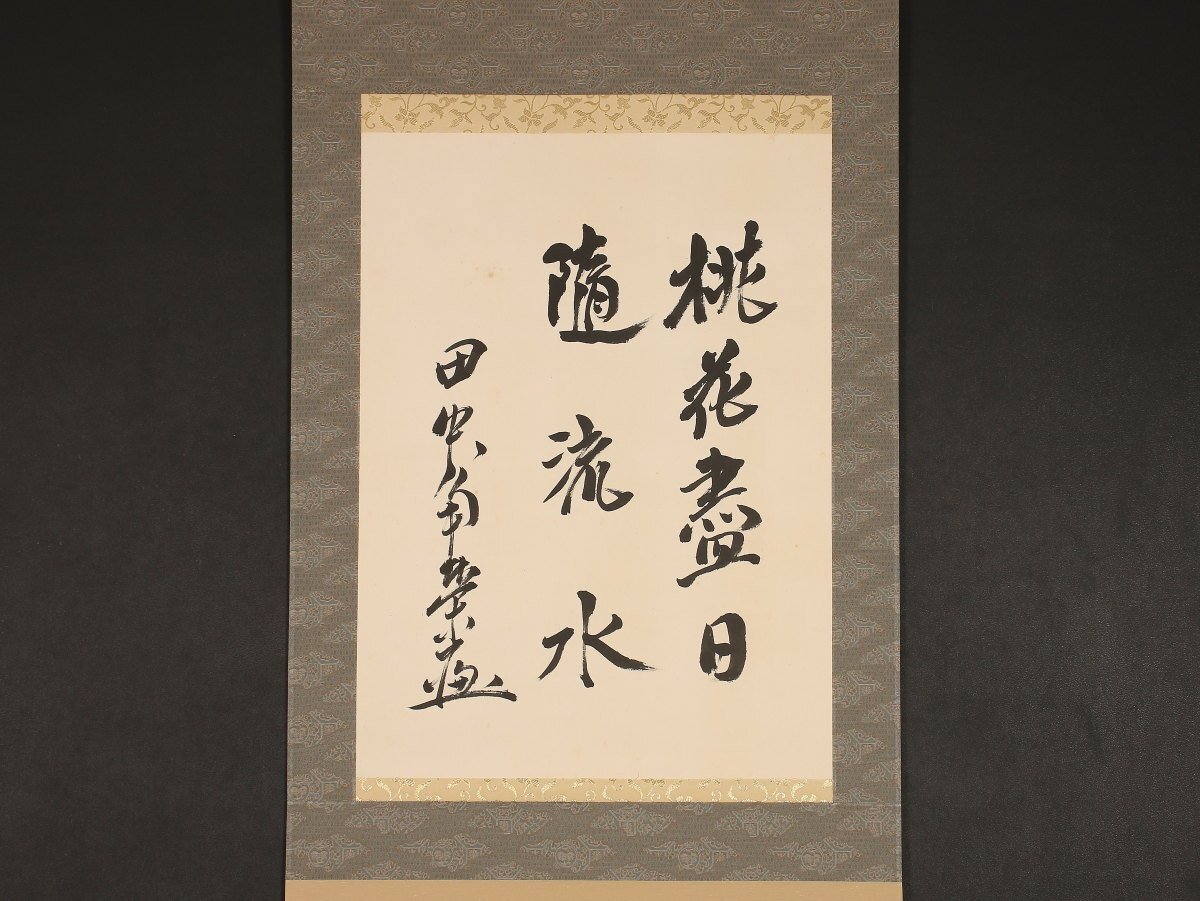 桃花盡日
隨流水
田中角榮書